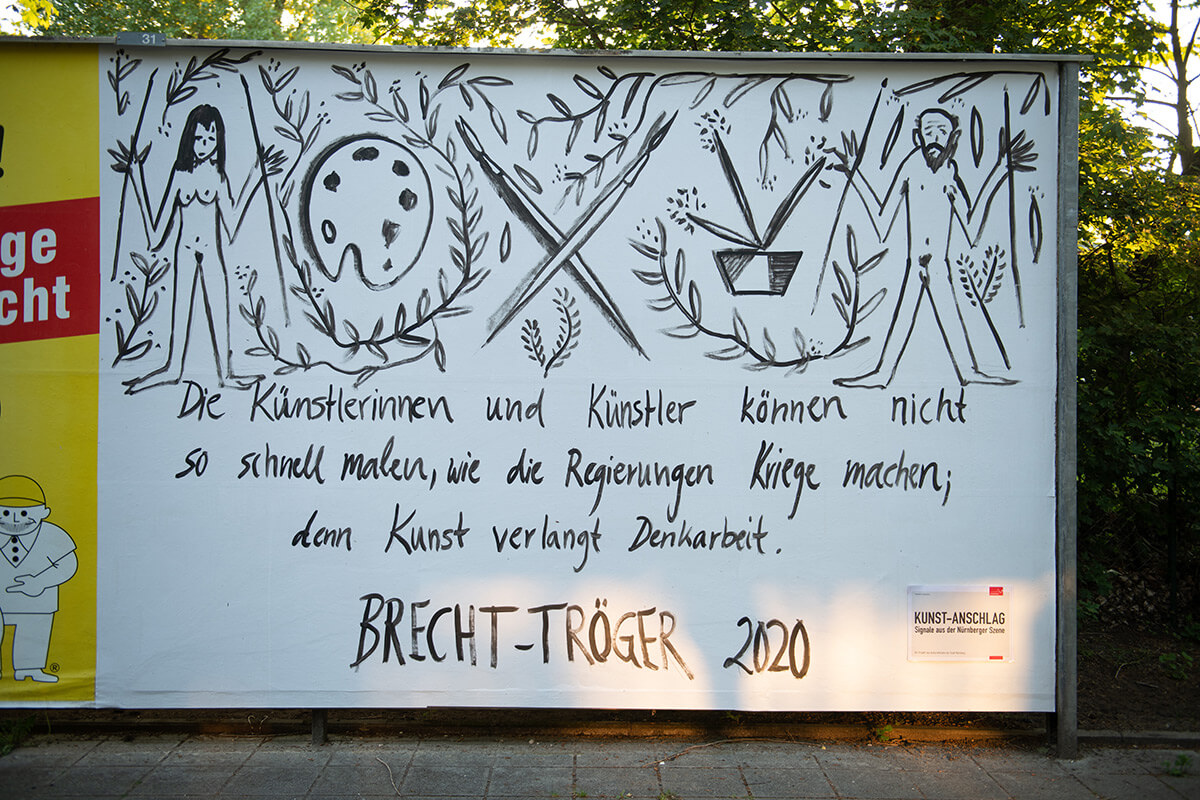 31
!
ge
cht
Die Künstlerinnen und Künstler können nicht
so schnell malen, wie die Regierungen Kriege machen;
denn Kunst verlangt Denkarbeit.
BRECHT-TRÖGER 2020
KUNST-ANSCHLAG
Signale aus der Nürnberger Szene
®